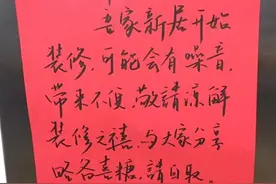 吾家新居开始
装修，可能会有噪音，
带来不便，敬請凉解
装修之禧，与大家分享
略备喜糖，請自取。